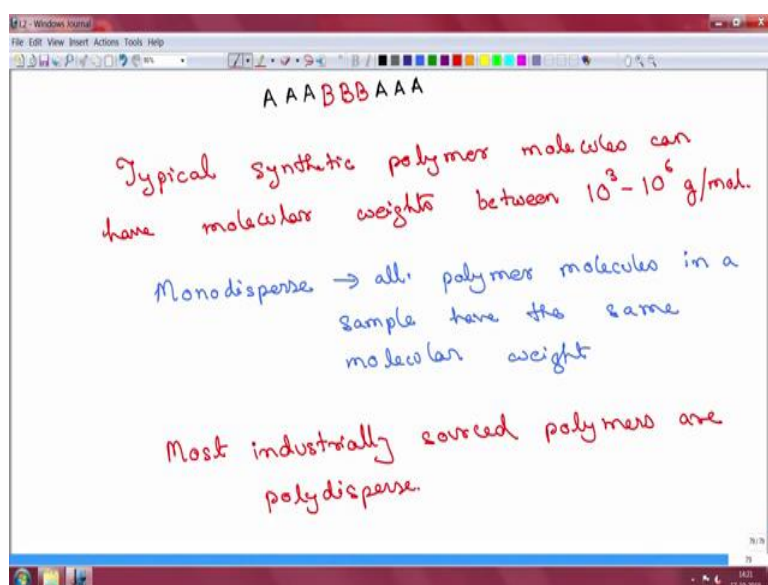 L2 - Windows Journal
File Edit View Insert Actions Tools Help
A A A B B B A A A
Typical synthetic polymer molecules can
have molecular weights between 10³ - 10⁶ g/mol.
Monodisperse → all. polymer molecules in a
sample have the same
molecular weight
Most industrially sourced polymers are
polydisperse.
79/79
79
14:21